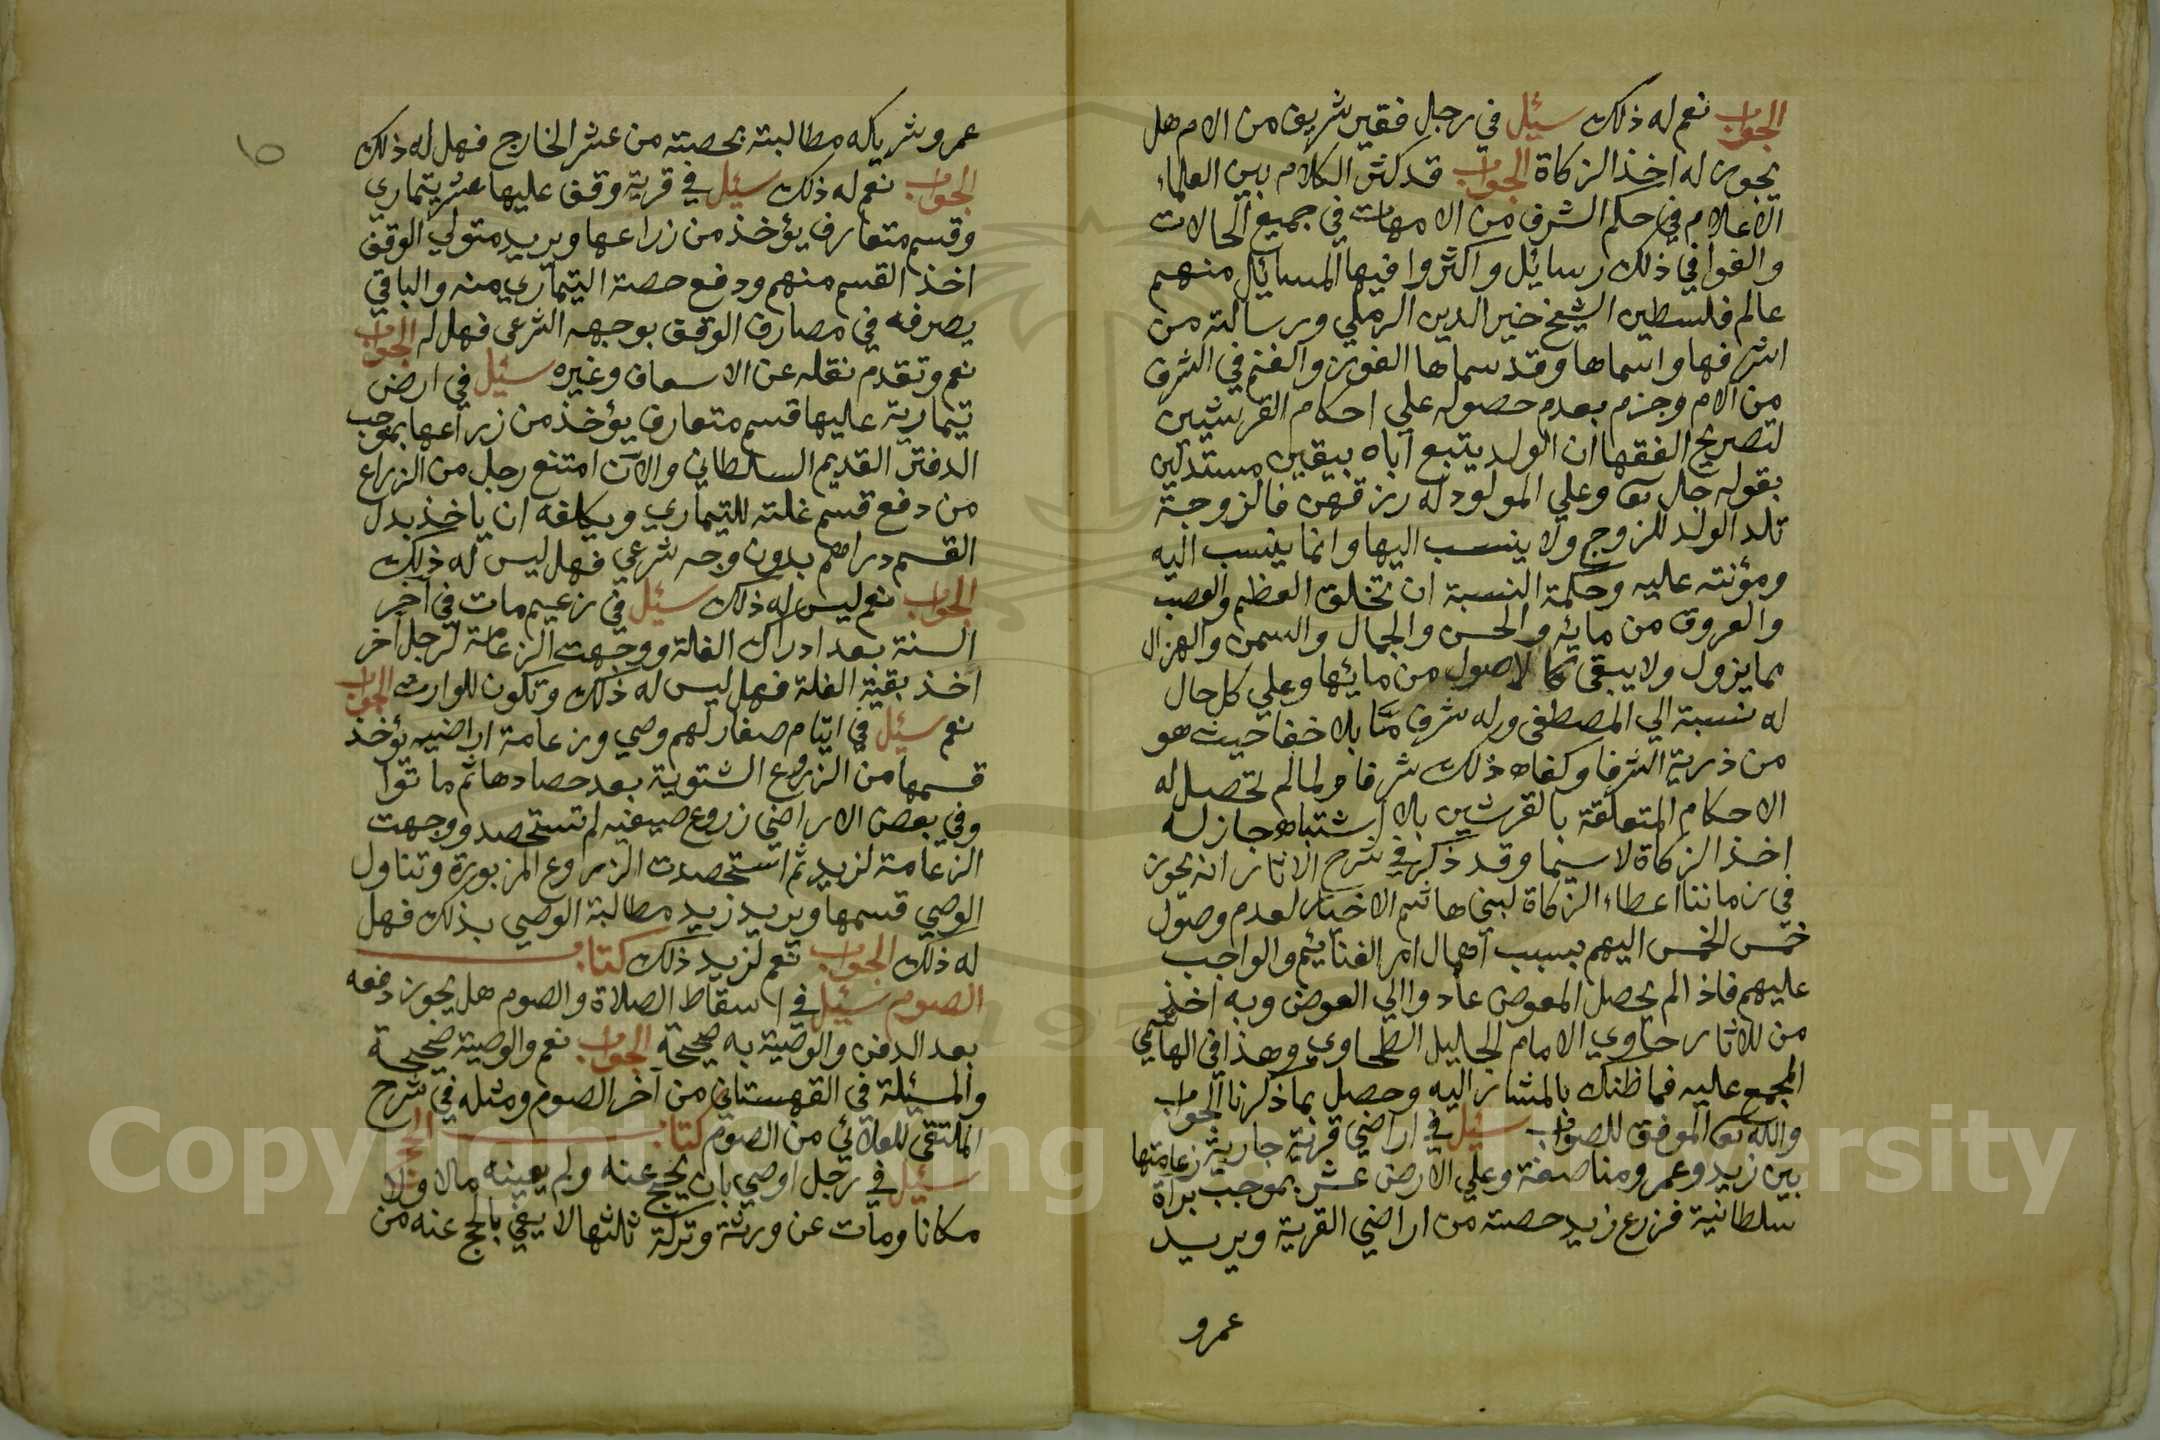 الجواب نعم له ذلك سئل في رجل فقير شريف من الام هل
يجوز له اخذ الزكاة الجواب قد كثر الكلام بين العلماء
الاعلام في حكم الشرف من الامهات في جميع الحالات
والفوا في ذلك رسايل واكثروا فيها المسايل منهم
عالم فلسطين الشيخ خير الدين الرملي ورسالته من
اشرفها واسماها وقد سماها الفوز والغنم في الشرف
من الام وجزم بعدم حصوله علي احكام القرشيين
لتصريح الفقها ان الولد يتبع اباه بيقين مستدلين
بقوله جل وعلي المولود له رزقهن فالزوجة
تلد الولد للزوج ولا ينسب اليها وانما ينسب اليه
ومؤنته عليه وحكمة النسبة ان تخلق العظم والعصب
والعروق من مائه والحسن والجمال والسمن والهزال
مما يزول ولا يبقى كالاصول من مائها وعلي كل حال
له نسبة الي المصطفى وله شرف ما بلا خفا حيث هو
من ذرية الشرفا وكفاه ذلك شرفا ولما لم تحصل له
الاحكام المتعلقة بالقرشيين بلا اشتباه جاز له
اخذ الزكاة لا سيما وقد ذكر في شرح الاثار انه يجوز
في زماننا اعطاء الزكاة لبني هاشم الاخيار لعدم وصول
خمس الخمس اليهم بسبب اهمال امر الغنائم والواجب
عليهم فاذا لم يحصل المعوض عادوا الي العوض وبه اخذ
من للاثار حاوي الامام الجليل الطحاوي وهذا في الهاشمي
المجمع عليه فما ظنك بالمشار اليه وحصل بما ذكرنا الجواب
والله الموفق للصواب سئل في اراضي قرية جارية زعامتها
بين زيد وعمرو مناصفة وعلي الارض عشر بموجب براة
سلطانية فزرع زيد حصته من اراضي القرية ويريد
عمرو
عمرو شريكه مطالبته بحصته من عشر الخارج فهل له ذلك
الجواب نعم له ذلك سئل في قرية وقف عليها عشر يتماري
وقسم متعارف يؤخذ من زراعها ويريد متولي الوقف
اخذ القسم منهم ودفع حصة التيماري منه والباقي
يصرفه في مصارف الوقف بوجهه الشرعي فهل له الجواب
نعم وتقدم نقله عن الاسعاف وغيره سئل في ارض
تيمارية عليها قسم متعارف يؤخذ من زراعها بموجب
الدفتر القديم السلطاني والان امتنع رجل من الزراع
من دفع قسم غلته للتيماري ويكلفه ان ياخذ بدل
القسم دراهم بدون وجه شرعي فهل ليس له ذلك
الجواب نعم ليس له ذلك سئل في زعيم مات في آخر
السنة بعد ادراك الغلة ووجهت الزعامة لرجل آخر
اخذ بقية الغلة فهل ليس له ذلك وتكون للوارث الجواب
نعم سئل في ايتام صغار لهم وصي وزعامة اراضيه يؤخذ
قسمها من الزروع الشتوية بعد حصادها ثم ماتوا
وفي بعض الاراضي زروع صيفيه لم تستحصد ووجهت
الزعامة لزيد ثم استحصدت الزروع المزبورة وتناول
الوصي قسمها ويريد زيد مطالبة الوصي بذلك فهل
له ذلك الجواب نعم لزيد ذلك كتاب
الصوم سئل في اسقاط الصلاة والصوم هل يجوز دفعه
بعد الدفن والوصية به صحيحة الجواب نعم والوصية صحيحة
والمسئلة في القهستاني من آخر الصوم ومثله في شرح
الملتقى للعلائي من الصوم كتاب الحج
سئل في رجل اوصي بان يحج عنه ولم يعينه مالا ولا
مكانا ومات عن ورثة وتركة ثلثها لا يفي بالحج عنه من
Copyright © King Saud University